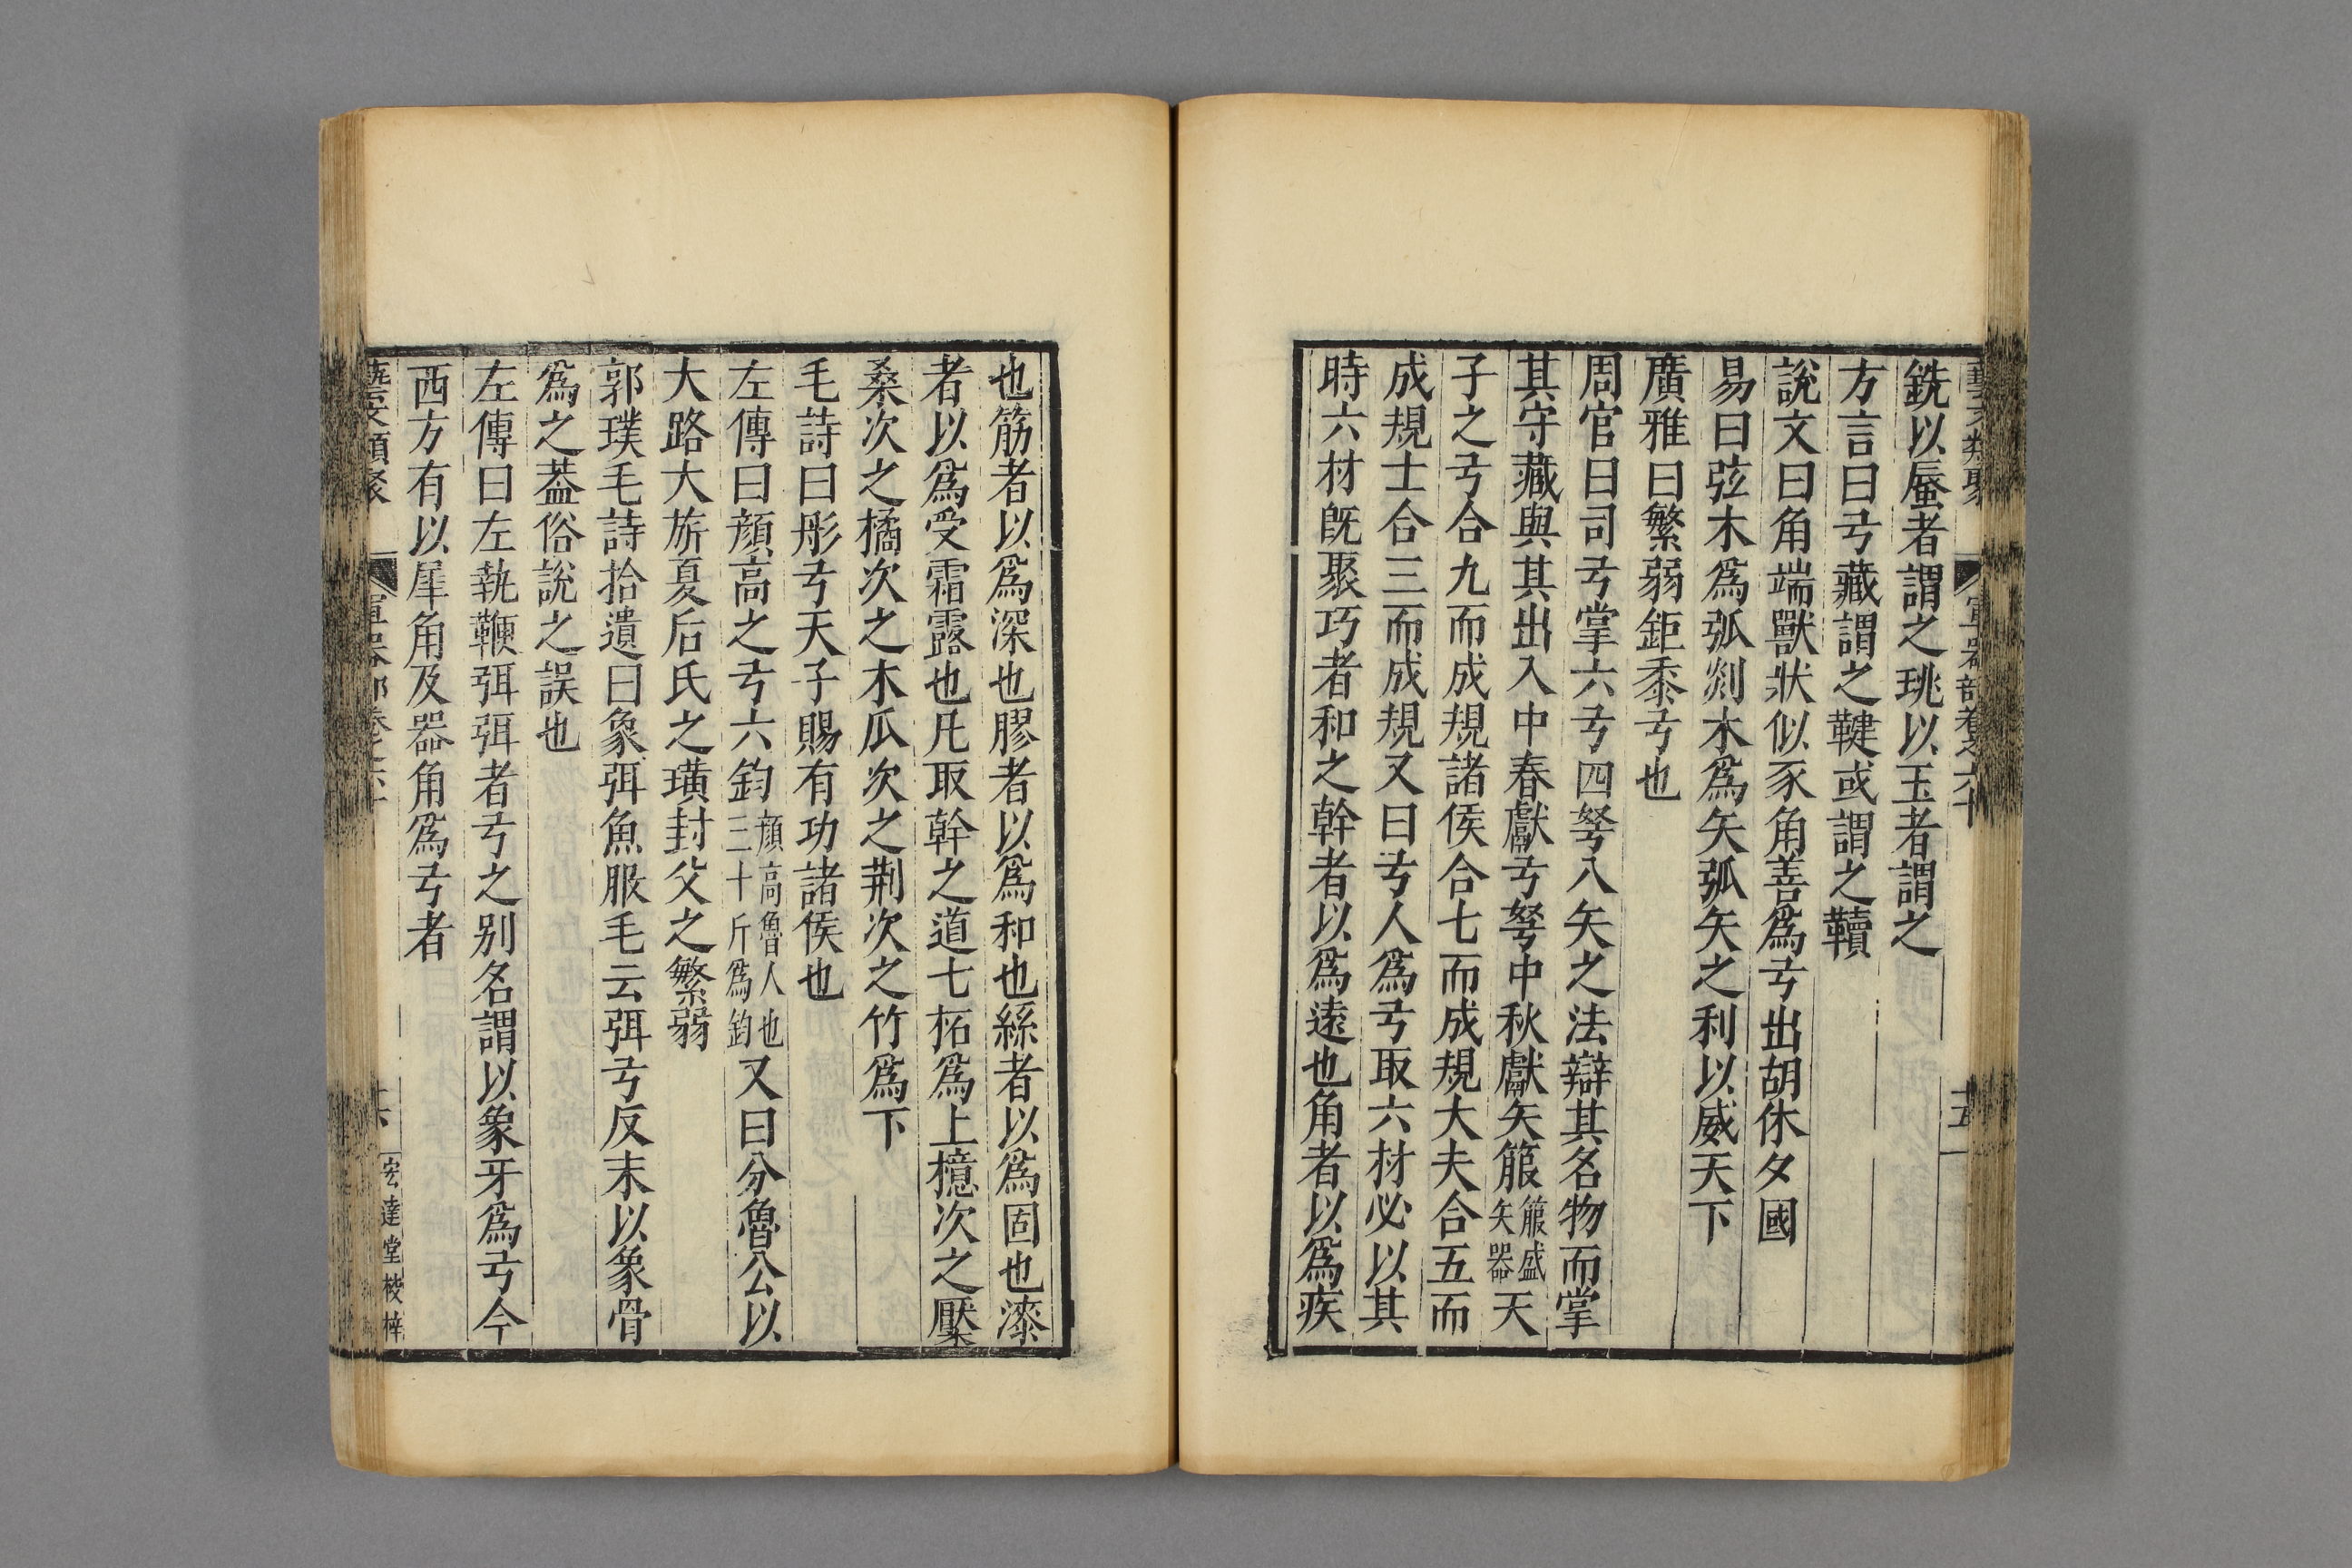 藝文類聚 軍器部卷之六十 十五
銑以蜃者謂之珧以玉者謂之
方言曰弓藏謂之鞬或謂之韥
說文曰角端獸狀似豕角善爲弓出胡休夕國
易曰弦木爲弧剡木爲矢弧矢之利以威天下
廣雅曰繁弱鉅黍弓也
周官曰司弓掌六弓四弩八矢之法辯其名物而掌
其守藏與其出入中春獻弓弩中秋獻矢箙箙盛矢器天
子之弓合九而成規諸侯合七而成規大夫合五而
成規士合三而成規又曰弓人爲弓取六材必以其
時六材旣聚巧者和之幹者以爲遠也角者以爲疾
也筋者以爲深也膠者以爲和也絲者以爲固也漆
者以爲受霜露也凡取幹之道七柘爲上檍次之檿
桑次之橘次之木瓜次之荆次之竹爲下
毛詩曰彤弓天子賜有功諸侯也
左傳曰顏高之弓六鈞顏高魯人也三十斤爲鈞又曰分魯公以
大路大旂夏后氏之璜封父之繁弱
郭璞毛詩拾遺曰象弭魚服毛云弭弓反末以象骨
爲之葢俗說之誤也
左傳曰左執鞭弭弭者弓之别名謂以象牙爲弓今
西方有以犀角及器角爲弓者
藝文類聚 軍器部卷之六十 十六 宏達堂梭梓